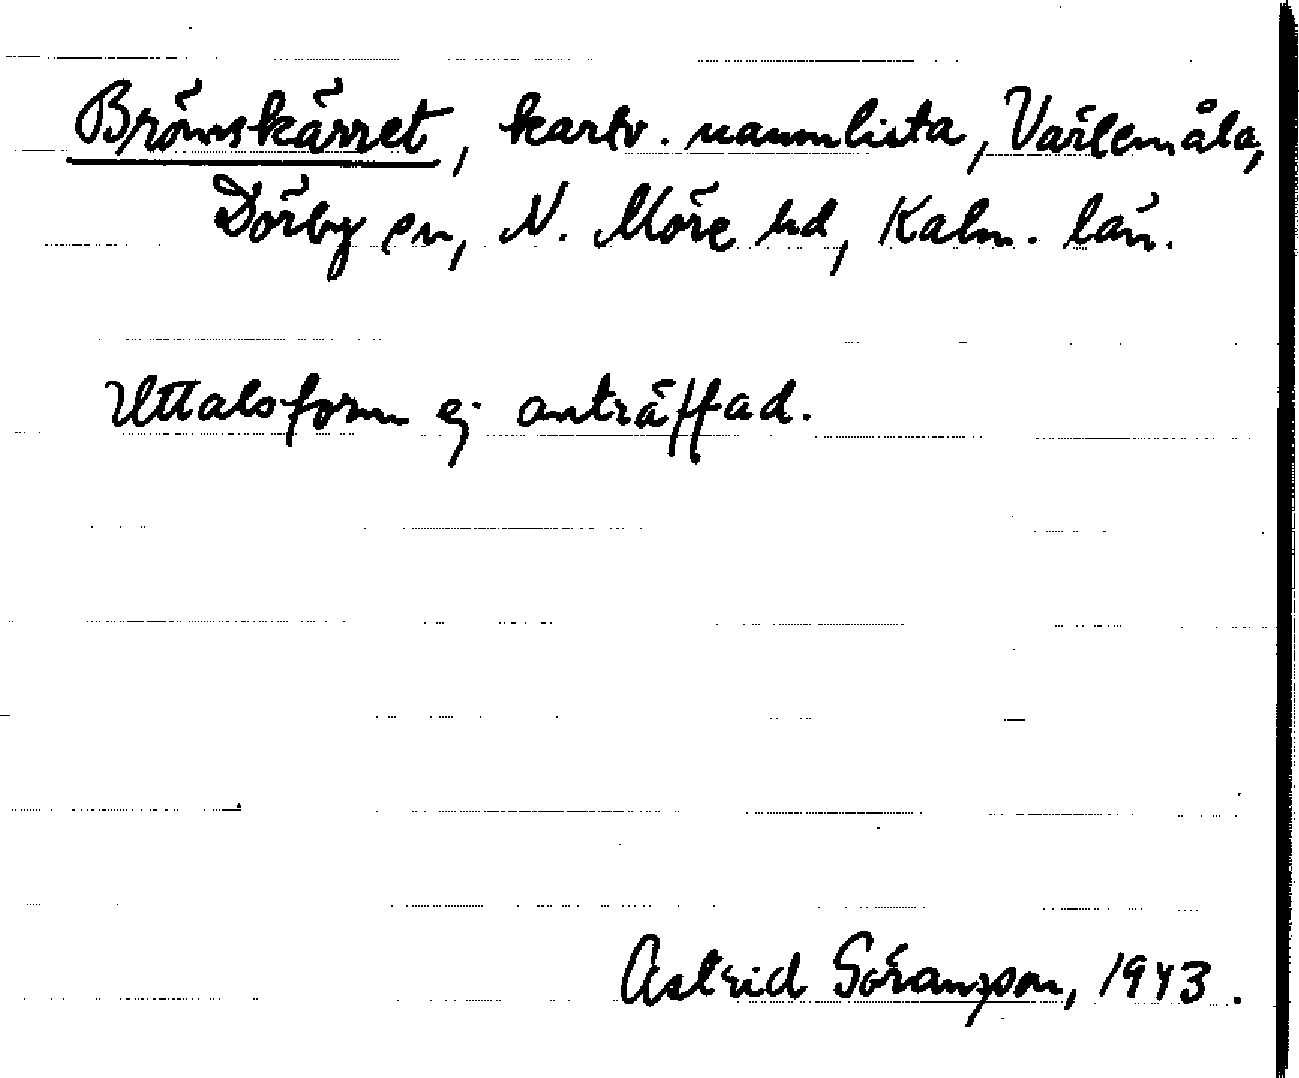 Brömskärret, kartv. namnlista, Värlemåla,
Dörby sn, N. Möre hd, Kalm. län.
Uttalsform ej anträffad.
Astrid Göranzson, 1943.